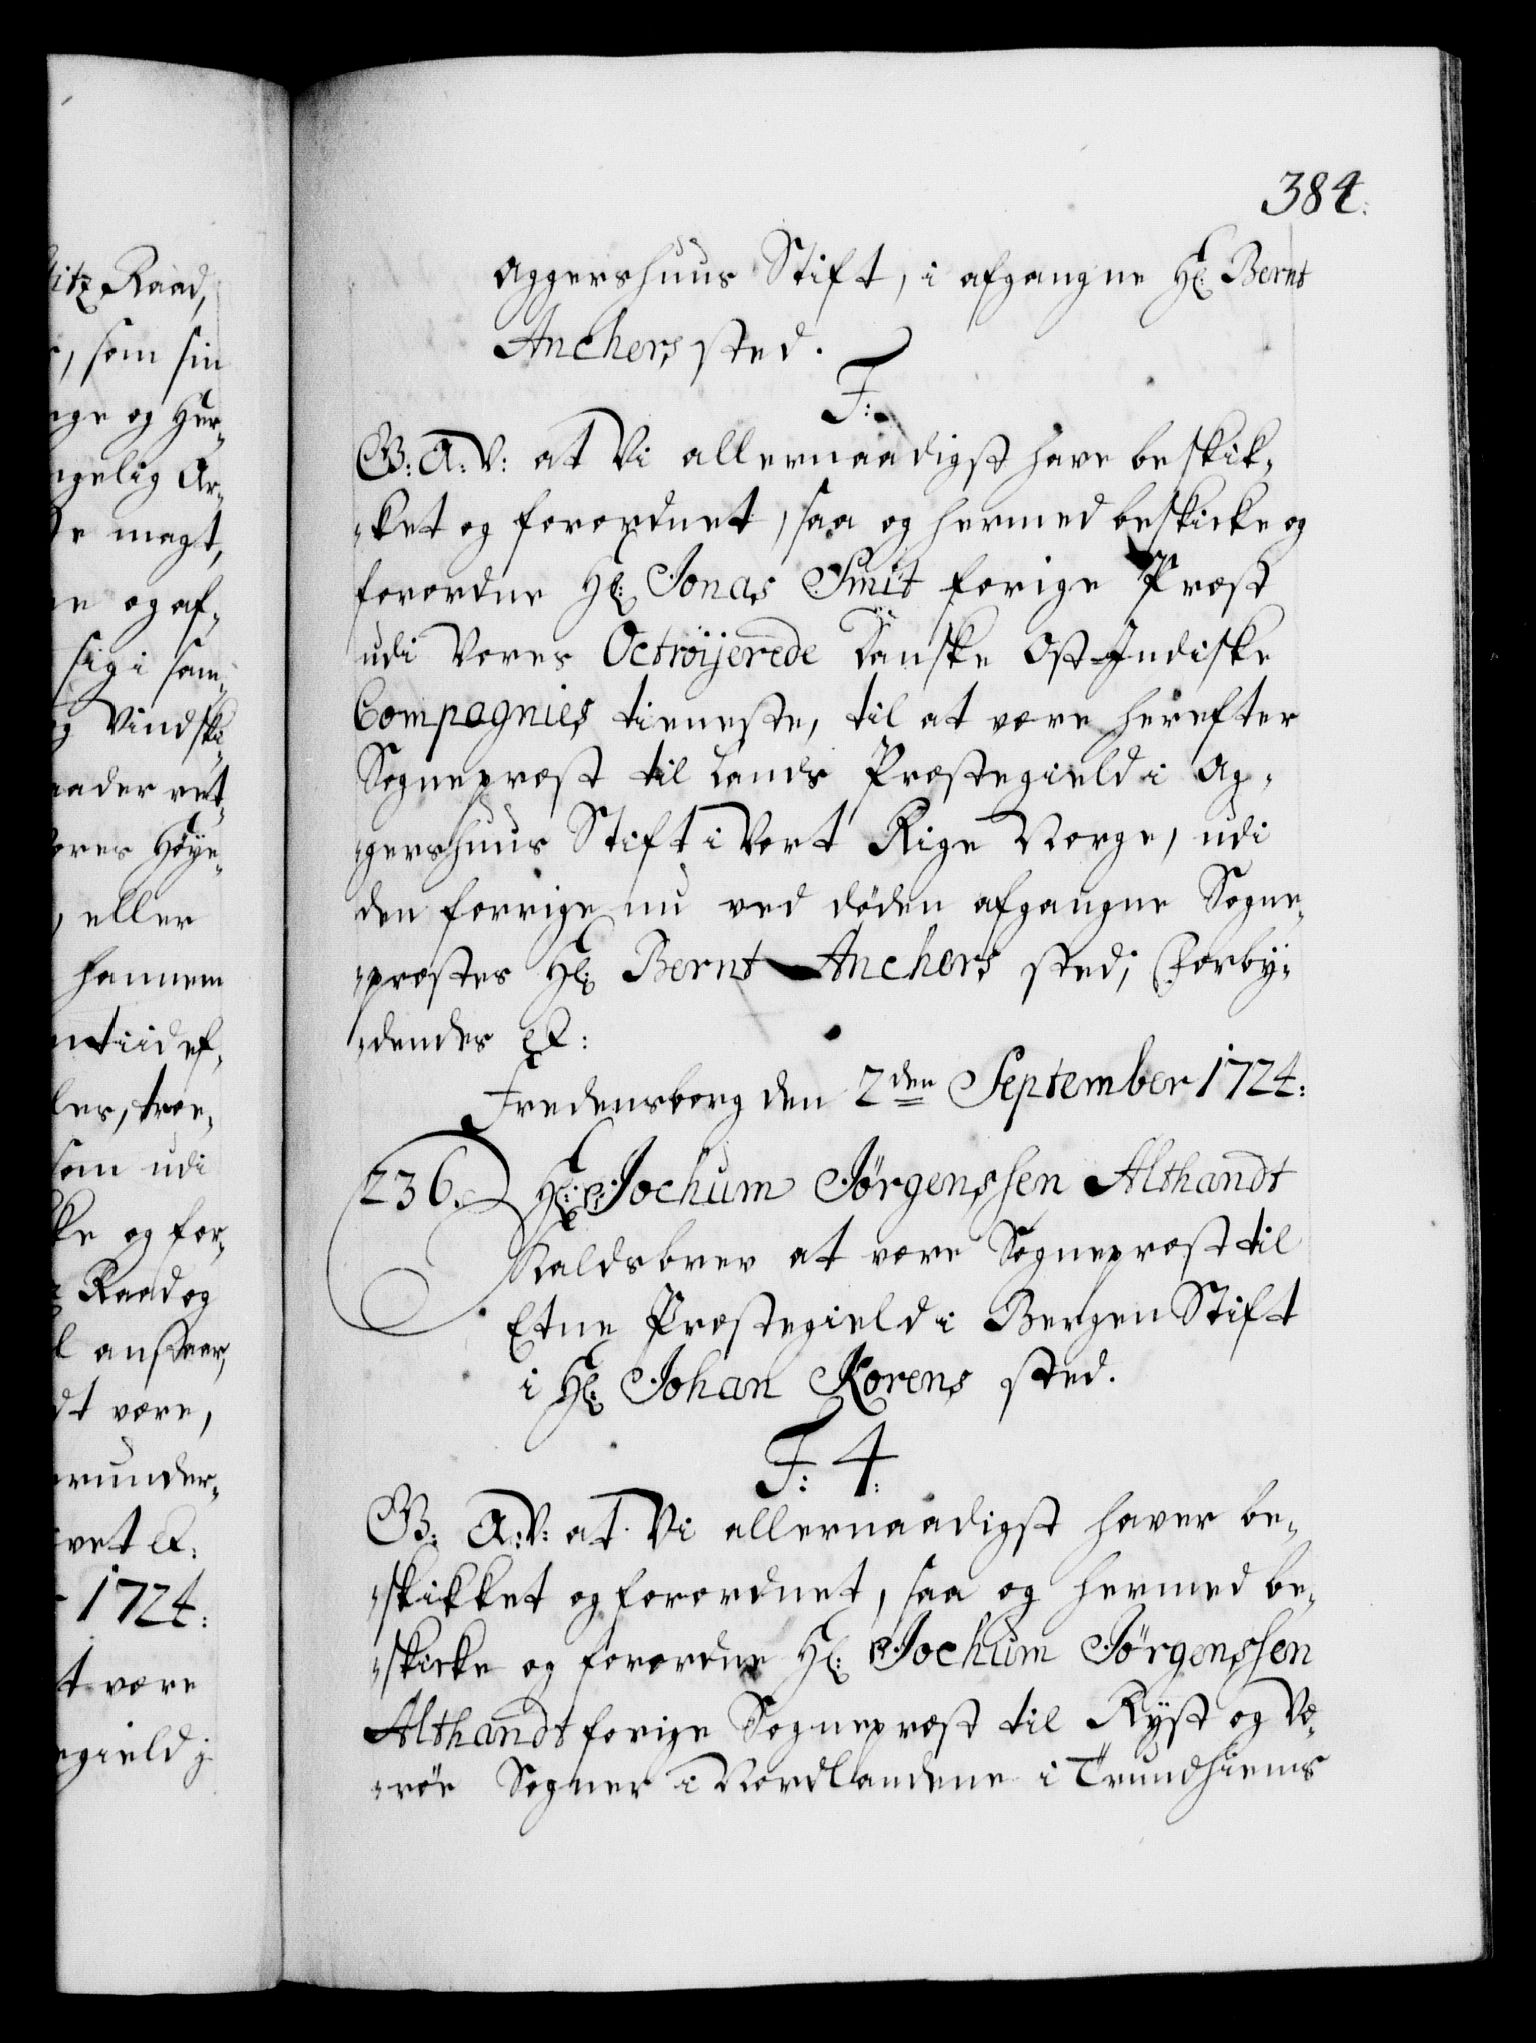 itz Raad,
, som sin
nge og Her-
ngelig Ar-
magt,
og af-
sig i sam-
Vindski-
aader ret-
vores Høye-
, eller
hannem
tiid ef-
les, troe-
som udi
ke og for-
Raad og
l anstaar,
dt være,
erunder-
vet etc:
1724:
t være
egield j
384.
Aggershuus Stift, i afgangne Hr: Bernt
Anchers sted.
F:
G: A: V: at Vi allernaadigst have beskik-
ket og forordnet, saa og hermed beskicke og
forordne Hr: Jonas Smit forige Præst
udi Vores Octroijerede Danske Ost-Indiske
Compagnies tieneste, til at være herefter
Sognepræst til Lands Præstegield i Ag-
gershuus Stift i Vort Rige Norge, udi
den forrige nu ved døden afgangne Sogne-
præstes Hr: Bernt Anchers sted; Forby-
dendes etc:
Fredensborg den 2den September 1724:
236. Hr: Jochum Jørgenssen Althandt
Kaldsbrev at være Sognepræst til
Etne Præstegield i Bergen Stift
i Hr: Johan Korens sted.
F: 4:
G: A: V: at Vi allernaadigst haver be-
skikket og forordnet, saa og hermed be-
skicke og forordne Hr: Jochum Jørgenssen
Althandt forige Sognepræst til Ryst og Væ-
røe Sogner i Nordlandene i Trundhiems